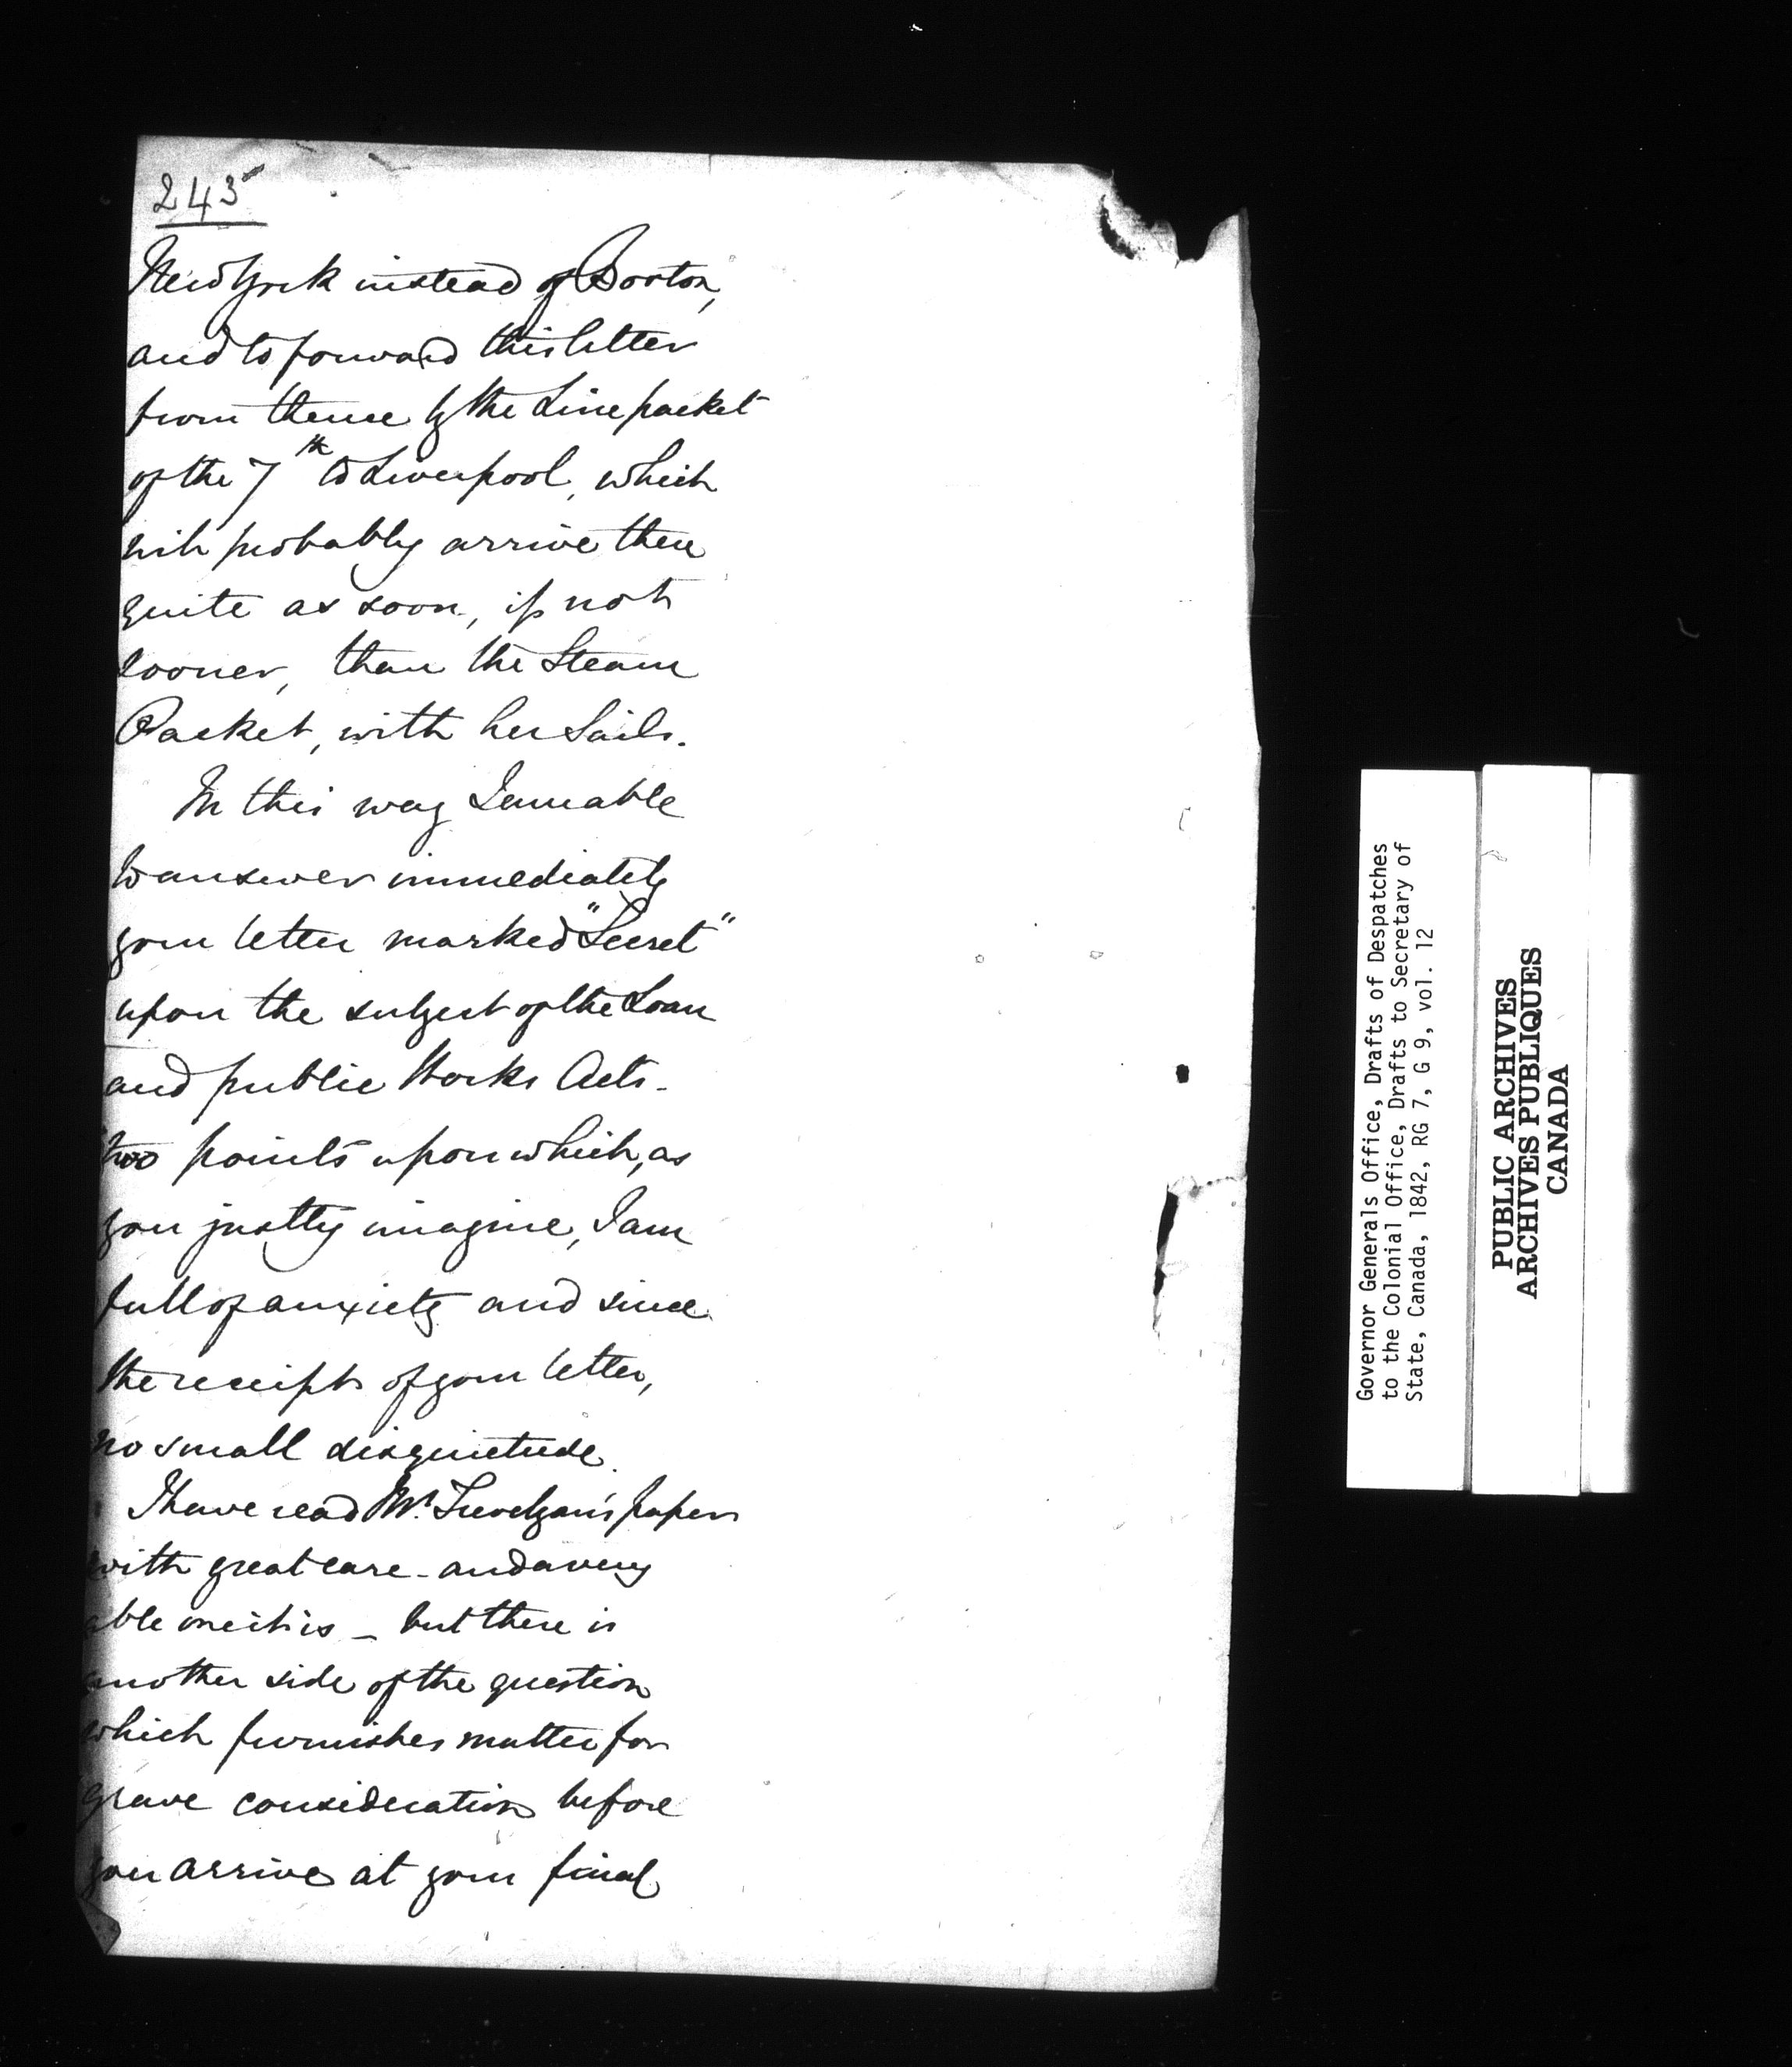 243
New York instead of Boston,
and to forward this letter
from thence by the Line packet
of the 7th to Liverpool, which
will probably arrive there
quite as soon, if not
sooner, than the Steam
Packet, with her Sails.
In this way I am able
to answer immediately
your letter marked "Secret"
upon the subject of the Loan
and public Works Acts -
two points upon which, as
you justly imagine, I am
full of anxiety and since
the receipt of your letter,
no small disquietude.
I have read Mr. Trevelyan's paper
with great care - and a very
able one it is - but there is
another side of the question
which furnishes matter for
grave consideration before
you arrive at your final
Governor Generals Office, Drafts of Despatches
to the Colonial Office, Drafts to Secretary of
State, Canada, 1842, RG 7, G 9, vol. 12
PUBLIC ARCHIVES
ARCHIVES PUBLIQUES
CANADA